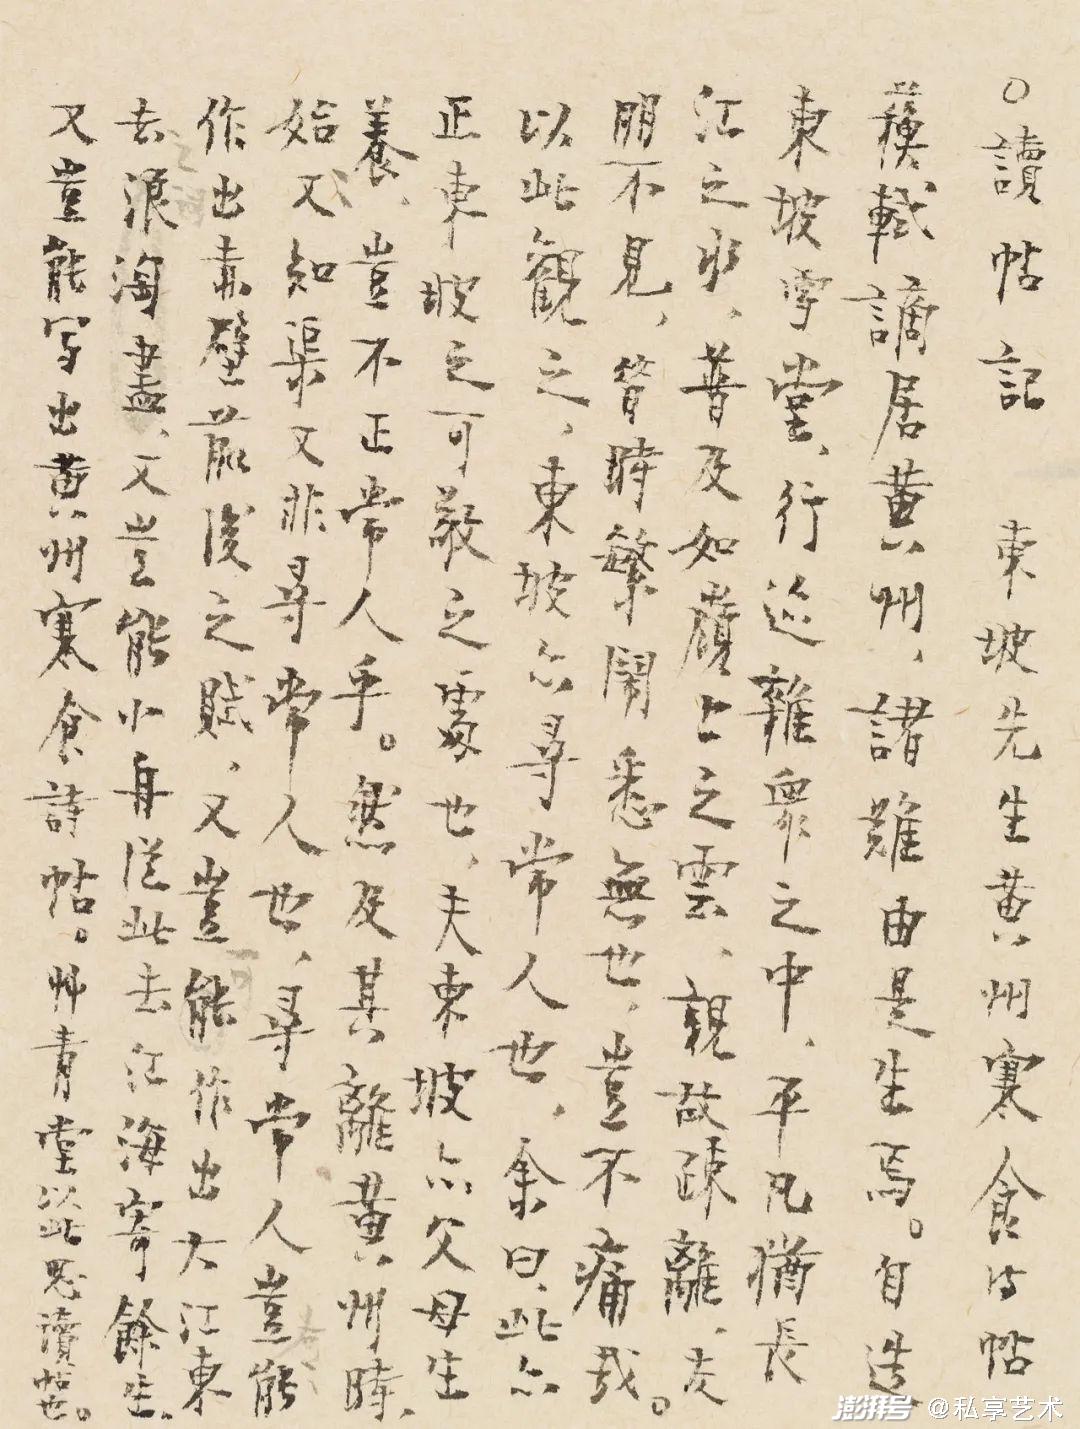 ○讀帖記　東坡先生黄州寒食诗帖
蘇軾謫居黄州、諸難由是生焉。自造
東坡雪堂、行迹雜衆之中、平凡猶長
江之水、普及如嶺上之雲、親故疎離、友
朋不見、昔時繁鬧悉無也、豈不痛哉。
以此觀之、東坡亦尋常人也、余曰、此亦
正東坡之可敬之處也、夫東坡亦父母生
養、豈不正常人乎。然及其離黄州時、
始又知渠又非尋常人也、尋常人豈能
作出赤壁前後之賦、又豈能作出大江東
去浪淘盡、又豈能小舟從此去江海寄餘生、
又豈能写出黄州寒食詩帖。艸青堂以此思讀帖也。
澎湃号 @私享艺术